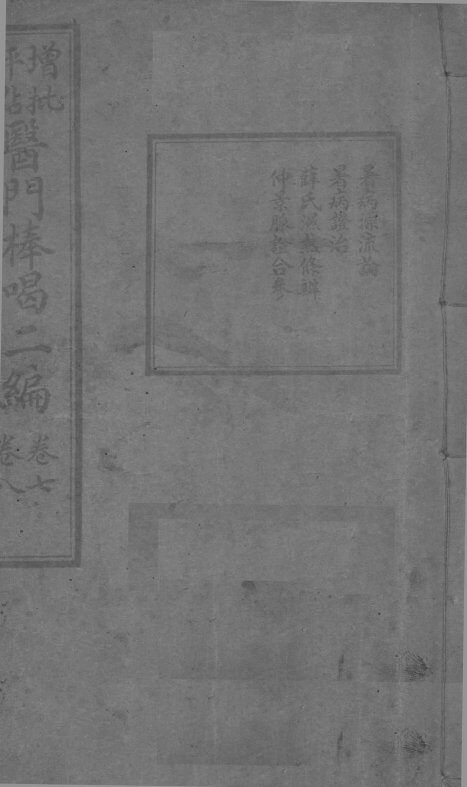 暑病源流論
暑病證治
薛氏濕熱條辨
仲景脈證合參
增批
評點
醫門棒喝二編
卷七
卷八